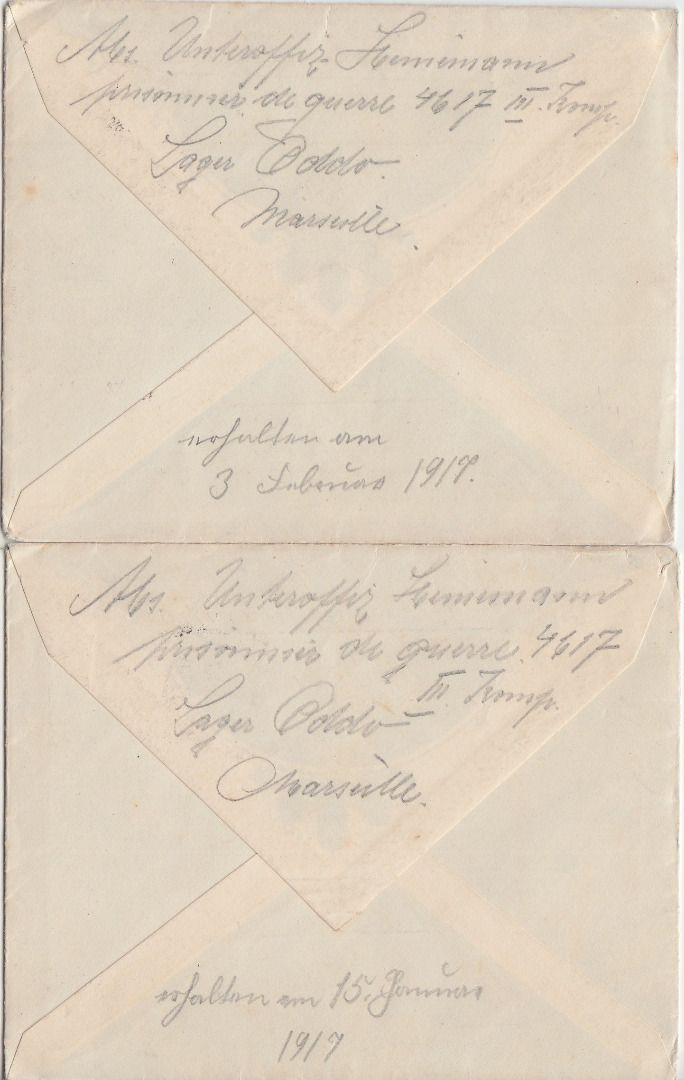 Abs. Unteroffiz. Heinemann
prisonnier de guerre 4617 III. Komp.
Lager Oddo
Marseille.
erhalten am
3 Februar 1917.
Abs. Unteroffiz Heinemann
prisonnier de guerre 4617
III. Komp.
Lager Oddo
Marseille.
erhalten am 15. Januar
1917